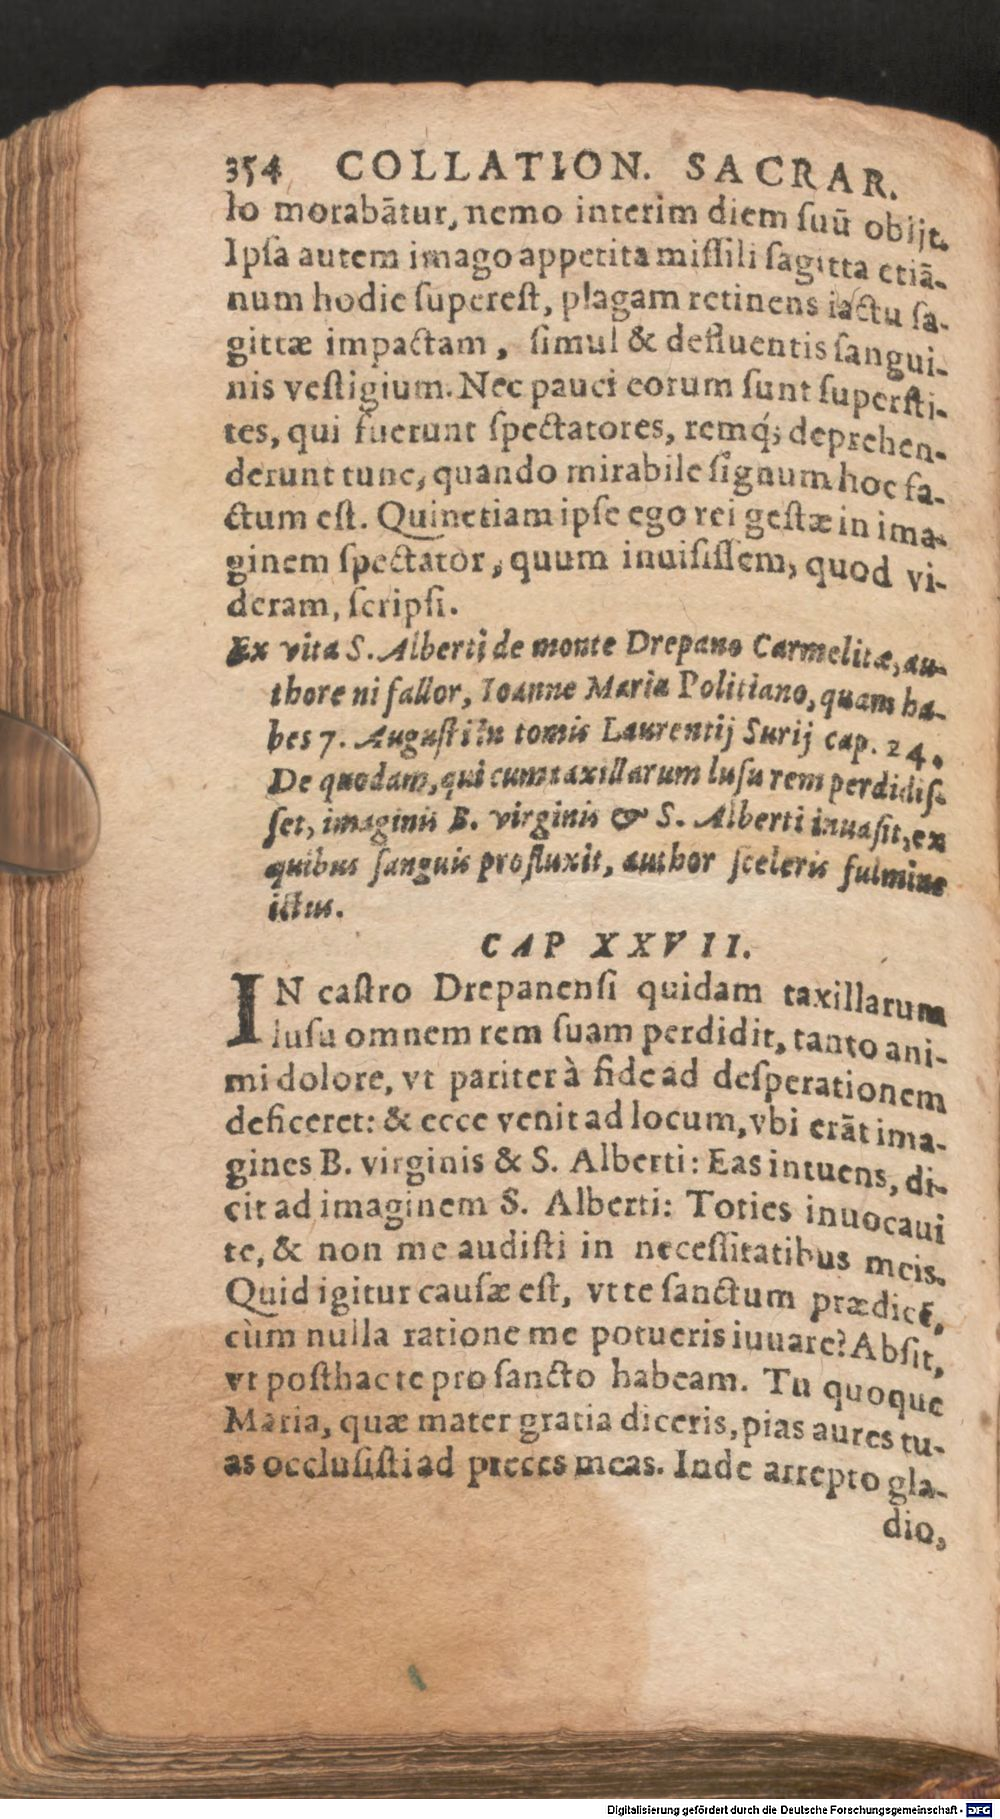 354 COLLATION. SACRAR.
lo morabātur, nemo interim diem ſuū obijt.
Ipſa autem imago appetita miſſili ſagitta etiā-
num hodie ſupereſt, plagam retinens iactu ſa-
gittæ impactam, ſimul & defluentis ſangui-
nis veſtigium. Nec pauci eorum ſunt ſuperſti-
tes, qui fuerunt ſpectatores, remq́; deprehen-
derunt tunc, quando mirabile ſignum hoc fa-
ctum eſt. Quinetiam ipſe ego rei geſtæ in ima-
ginem ſpectator, quum inuiſiſſem, quod vi-
deram, ſcripſi.
Ex vita S. Alberti de monte Drepano Carmelitæ, au-
thore ni fallor, Ioanne Maria Politiano, quam ha-
bes 7. Auguſti in tomis Laurentij Surij cap. 24.
De quodam, qui cum taxillarum luſu rem perdidiſ-
ſet, imaginis B. virginis & S. Alberti inuaſit, ex
quibus ſanguis profluxit, author ſceleris fulmine
ictus.
CAP XXVII.
IN caſtro Drepanenſi quidam taxillarum
luſu omnem rem ſuam perdidit, tanto ani-
mi dolore, vt pariter à fide ad deſperationem
deficeret: & ecce venit ad locum, vbi erāt ima-
gines B. virginis & S. Alberti: Eas intuens, di-
cit ad imaginem S. Alberti: Toties inuocaui
te, & non me audiſti in neceſſitatibus meis.
Quid igitur cauſæ eſt, vt te ſanctum prædicē,
cùm nulla ratione me potueris iuuare? Abſit,
vt poſthac te pro ſancto habeam. Tu quoque
Maria, quæ mater gratia diceris, pias aures tu-
as occluſiſti ad preces meas. Inde arrepto gla-
dio,
Digitalisierung gefördert durch die Deutsche Forschungsgemeinschaft - DFG